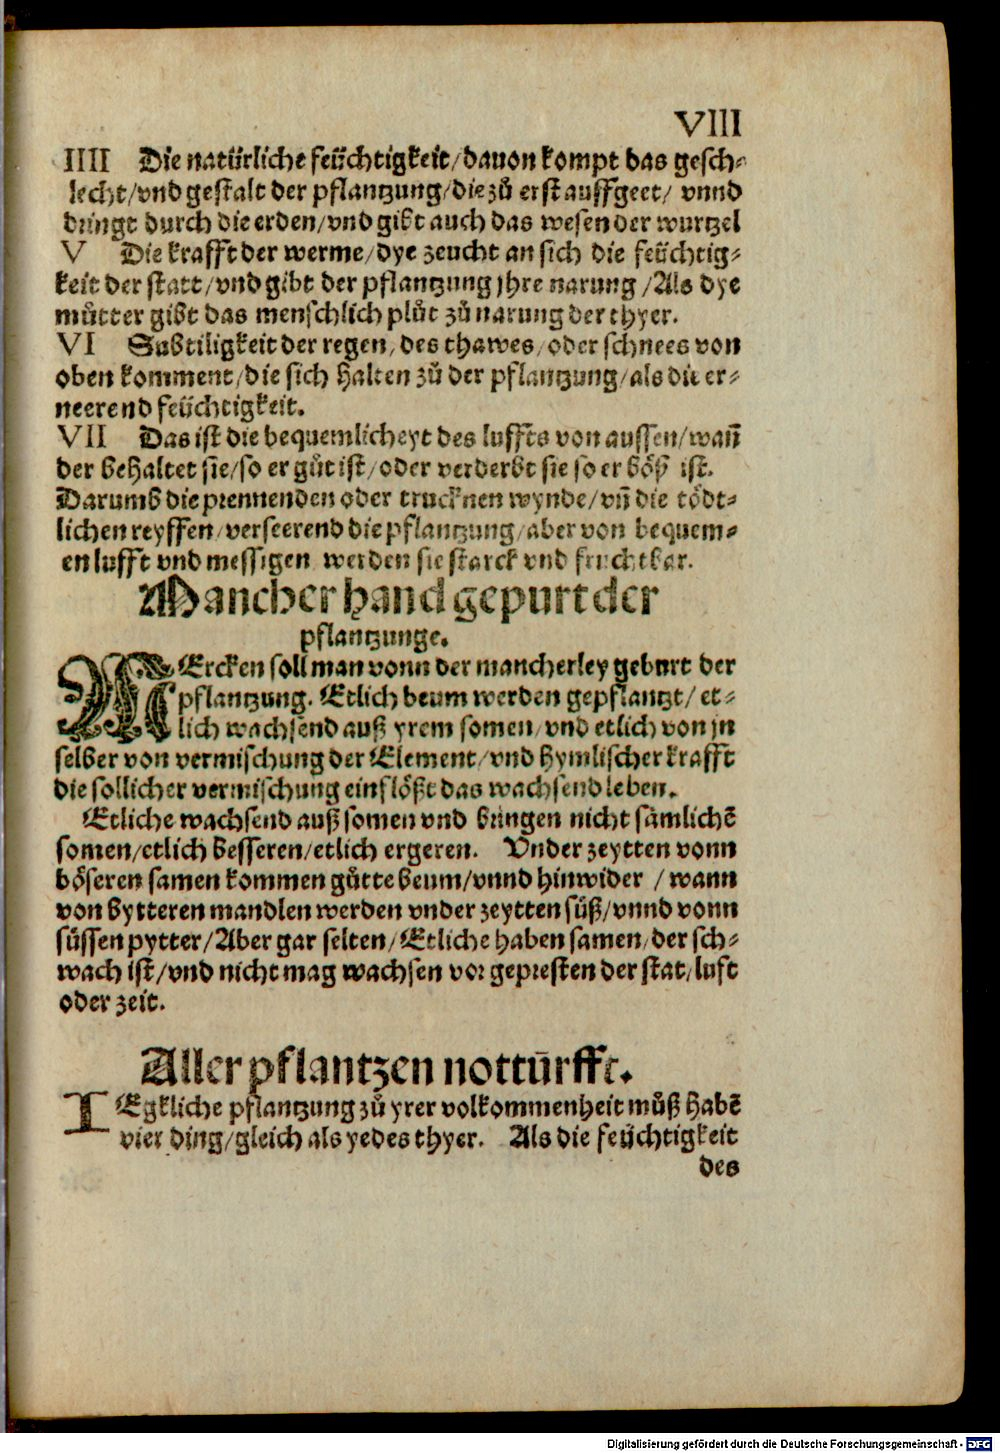 VIII
IIII Die natürliche feüchtigkeit/dauon kompt das gesch⸗
lecht/vnd gestalt der pflantzung/die zů erst auffgeet/ vnnd
dringt durch die erden/vnd gibt auch das wesen der wurtzel
V Die krafft der werme/dye zeucht an sich die feüchtig⸗
keit der statt/vnd gibt der pflantzung jhre narung /Als dye
můtter gibt das menschlich plůt zů narung der thyer.
VI Subtiligkeit der regen/des thawes/oder schnees von
oben komment/die sich halten zů der pflantzung/als die er⸗
neerend feüchtigkeit.
VII Das ist die bequemlicheyt des luffts von aussen/wañ
der behaltet sie/so er gůt ist/oder verderbt sie so er böß ist.
Darumb die prennenden oder trucknen wynde/vñ die tödt⸗
lichen reyffen/verseerend die pflantzung/aber von bequem⸗
en lufft vnd messigen werden sie starck vnd fruchtbar.
Mancher hand gepurt der
pflantzunge.
MErcken soll man vonn der mancherley geburt der
pflantzung. Etlich beum werden gepflantzt/ et⸗
lich wachsend auß yrem somen/vnd etlich von jn
selber von vermischung der Element/vnd hymlischer krafft
die sollicher vermischung einflößt das wachsend leben.
Etliche wachsend auß somen vnd bringen nicht sämlichē
somen/etlich besseren/etlich ergeren. Vnder zeytten vonn
böseren samen kommen gůtte beum/vnnd hinwider /wann
von bytteren mandlen werden vnder zeytten süß/vnnd vonn
süssen pytter/Aber gar selten/Etliche haben samen/der sch⸗
wach ist/vnd nicht mag wachsen vor gepresten der stat/luft
oder zeit.
Aller pflantzen nottürfft.
IEgkliche pflantzung zů yrer volkommenheit můß habē
vier ding/gleich als yedes thyer. Als die feüchtigkeit
des
Digitalisierung gefördert durch die Deutsche Forschungsgemeinschaft - DFG